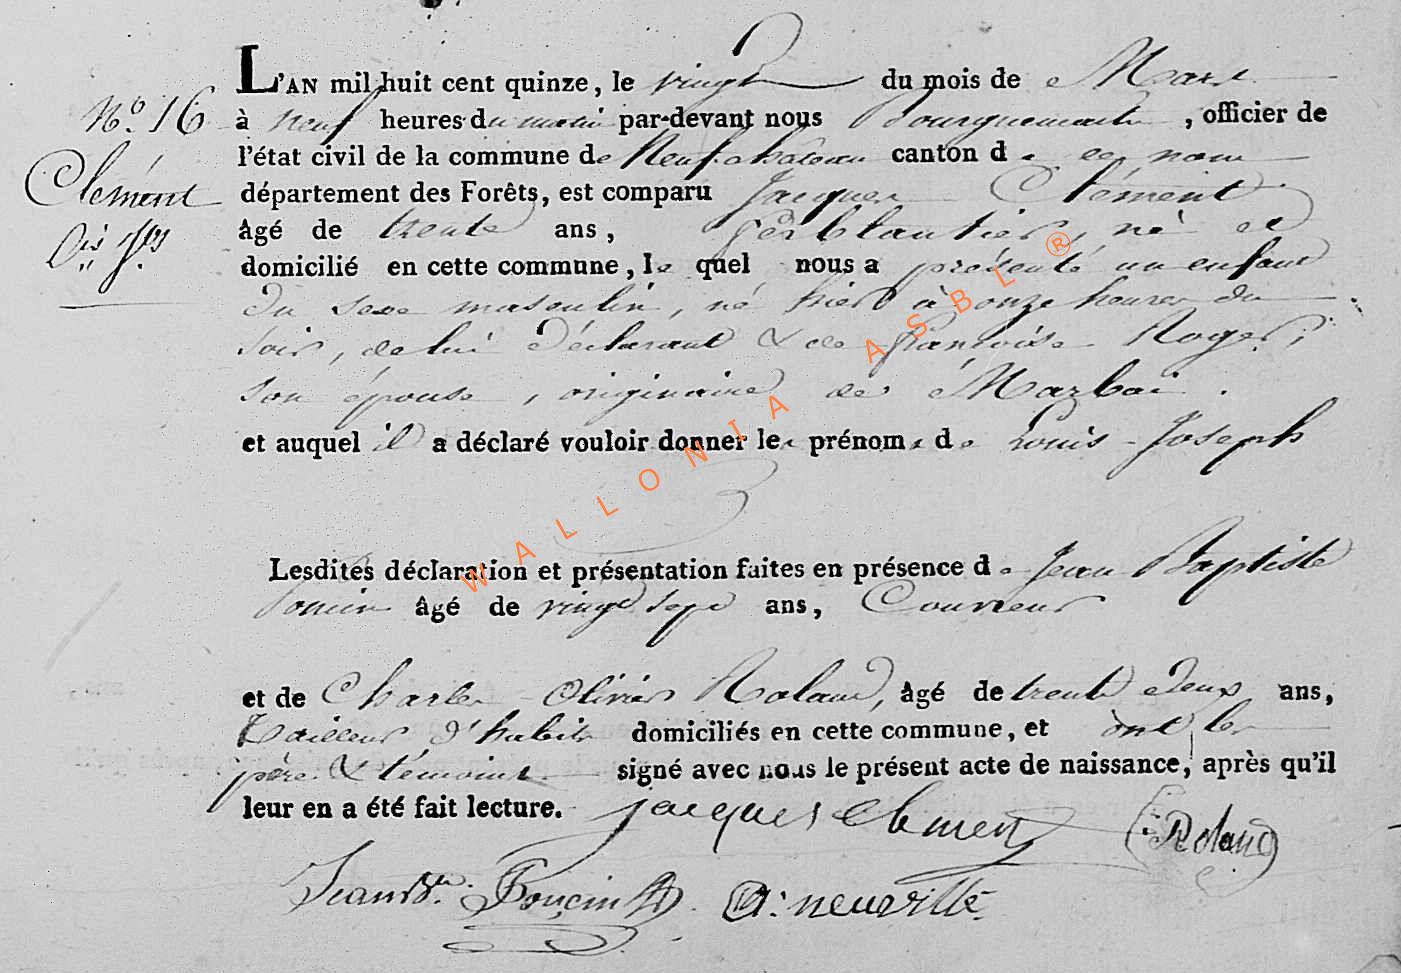 L'AN mil huit cent quinze, le vingt du mois de Mars
N.° 16 à neuf heures du matin par-devant nous , officier de
l'état civil de la commune de Neufchâteau canton de de nom
Clément département des Forêts, est comparu Jacques Clément
âgé de trente ans, ferblantier, né et
domicilié en cette commune, le quel nous a présenté un enfant
du sexe masculin, né hier à onze heures du
soir, de lui déclarant & de françoise Roger,
son épouse, originaire de Marbai.
et auquel il a déclaré vouloir donner les prénoms de Louis-Joseph
Lesdites déclaration et présentation faites en présence de Jean Baptiste
Poncin âgé de vingt sept ans, Couvreur
et de Charles-Olivier Roland, âgé de trente deux ans,
tailleur d'habits domiciliés en cette commune, et ont les
père & témoins signé avec nous le présent acte de naissance, après qu'il
leur en a été fait lecture. jacques Clement Roland
Jean Bte. Poncin A: neuville
WALLONIA ASBL ®